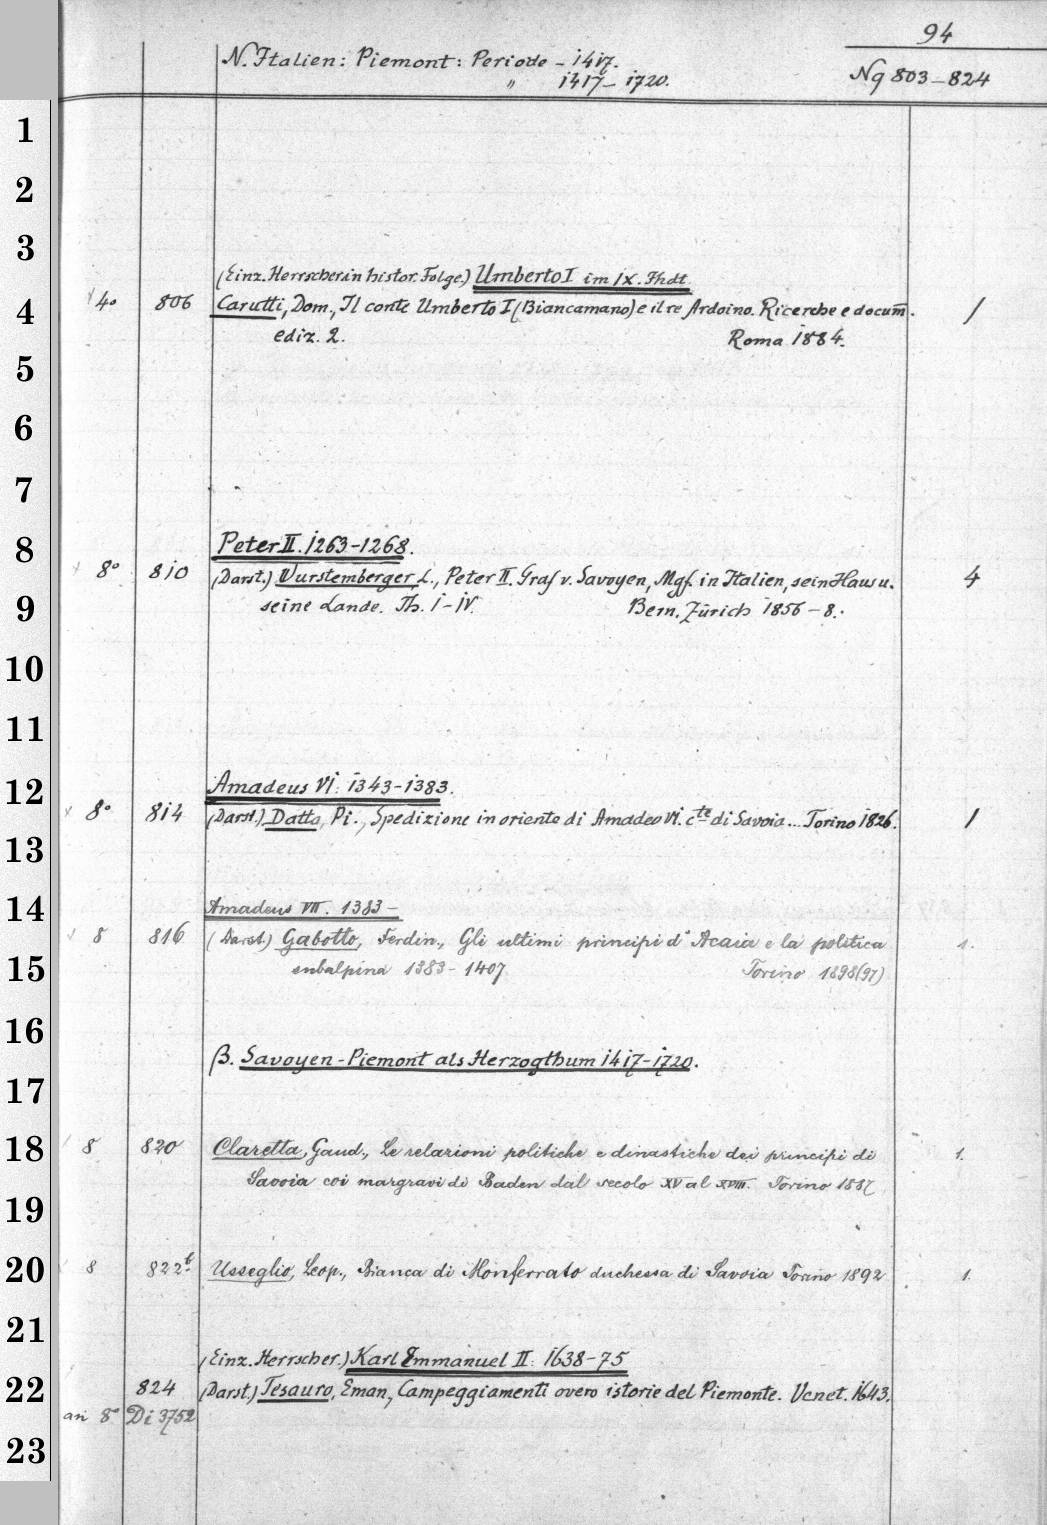 94
N. Italien: Piemont: Periode - 1417.
" 1417- 1720.
Nq 803-824
1
2
3
(Einz. Herrscher in histor. Folge.) Umberto I im IX. Jhdt
4 4° 806 Carutti, Dom., Il conte Umberto I (Biancamano) e il re Ardoino. Ricerche e docum̄. 1
ediz. 2. Roma 1884.
5
6
7
8 Peter II. 1263-1268.
8° 810 (Darst.) Wurstemberger L., Peter II. Graf v. Savoyen, Mgf. in Italien, sein Haus u. 4
9 seine Lande. Th. I-IV. Bern. Zürich 1856-8.
10
11
12 Amadeus VI. 1343-1383.
8° 814 (Darst.) Datta, Pi., Spedizione in oriente di Amadeo VI. cte di Savoia... Torino 1826. 1
13
14 Amadeus VII. 1383-
8 816 (Darst.) Gabotto, Ferdin., Gli ultimi principi d'Acaia e la politica 1.
15 subalpina 1383-1407 Torino 1898(97)
16
β. Savoyen-Piemont als Herzogthum 1417-1720.
17
18 8 820 Claretta, Gaud., Le relazioni politiche e dinastiche dei principi di 1.
Savoia coi margravi di Baden dal secolo XV al XVIII. Torino 1887
19
20 8 822b Usseglio, Leop., Bianca di Monferrato duchessa di Savoia Torino 1892 1.
21
(Einz. Herrscher.) Karl Emmanuel II: 1638-75
22 824 (Darst.) Tesauro, Eman., Campeggiamenti overo istorie del Piemonte. Venet. 1643.
an 8° Di 3752
23